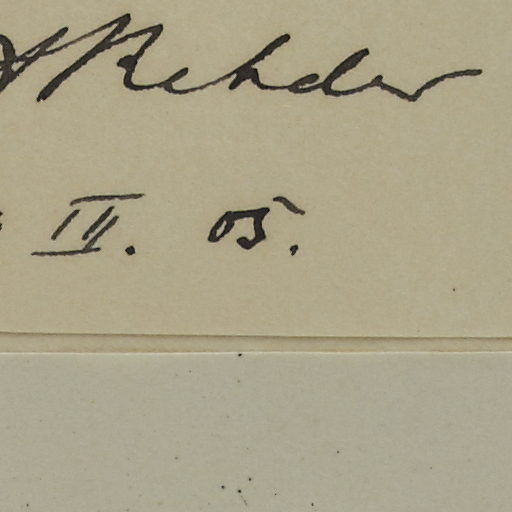 Rehder
III. 05.